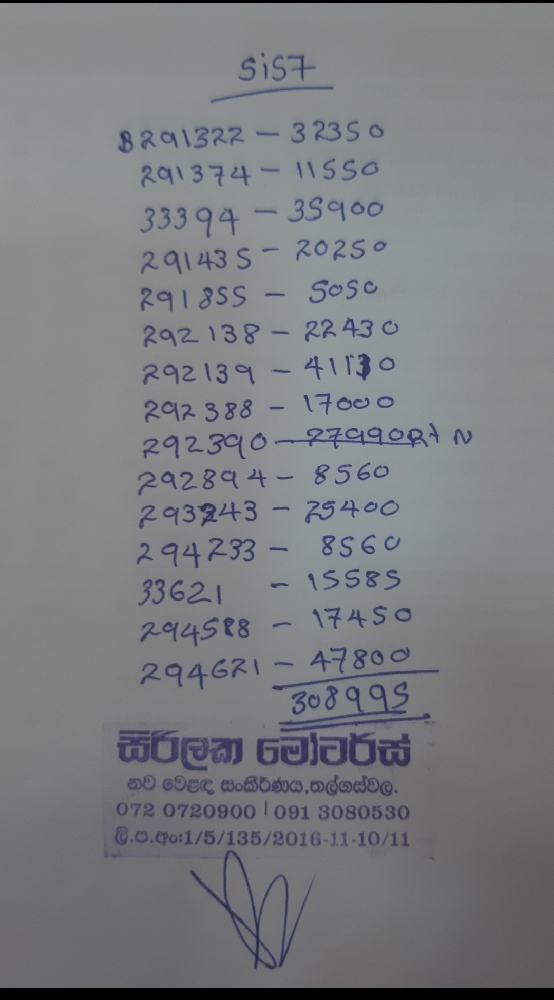 SiS7
B291322 - 32350
291374 - 11550
33394 - 35900
291435 - 20250
291855 - 5050
292138 - 22430
292139 - 41130
292388 - 17000
292390 - 27990 R+N
292894 - 8560
293243 - 25400
294233 - 8560
33621 - 15585
294588 - 17450
294621 - 47800
308995
සිරිලක මෝටර්ස්
නව වෙළඳ සංකීර්ණය,තල්ගස්වල.
072 0720900 | 091 3080530
ලි.ප.අං:1/5/135/2016-11-10/11